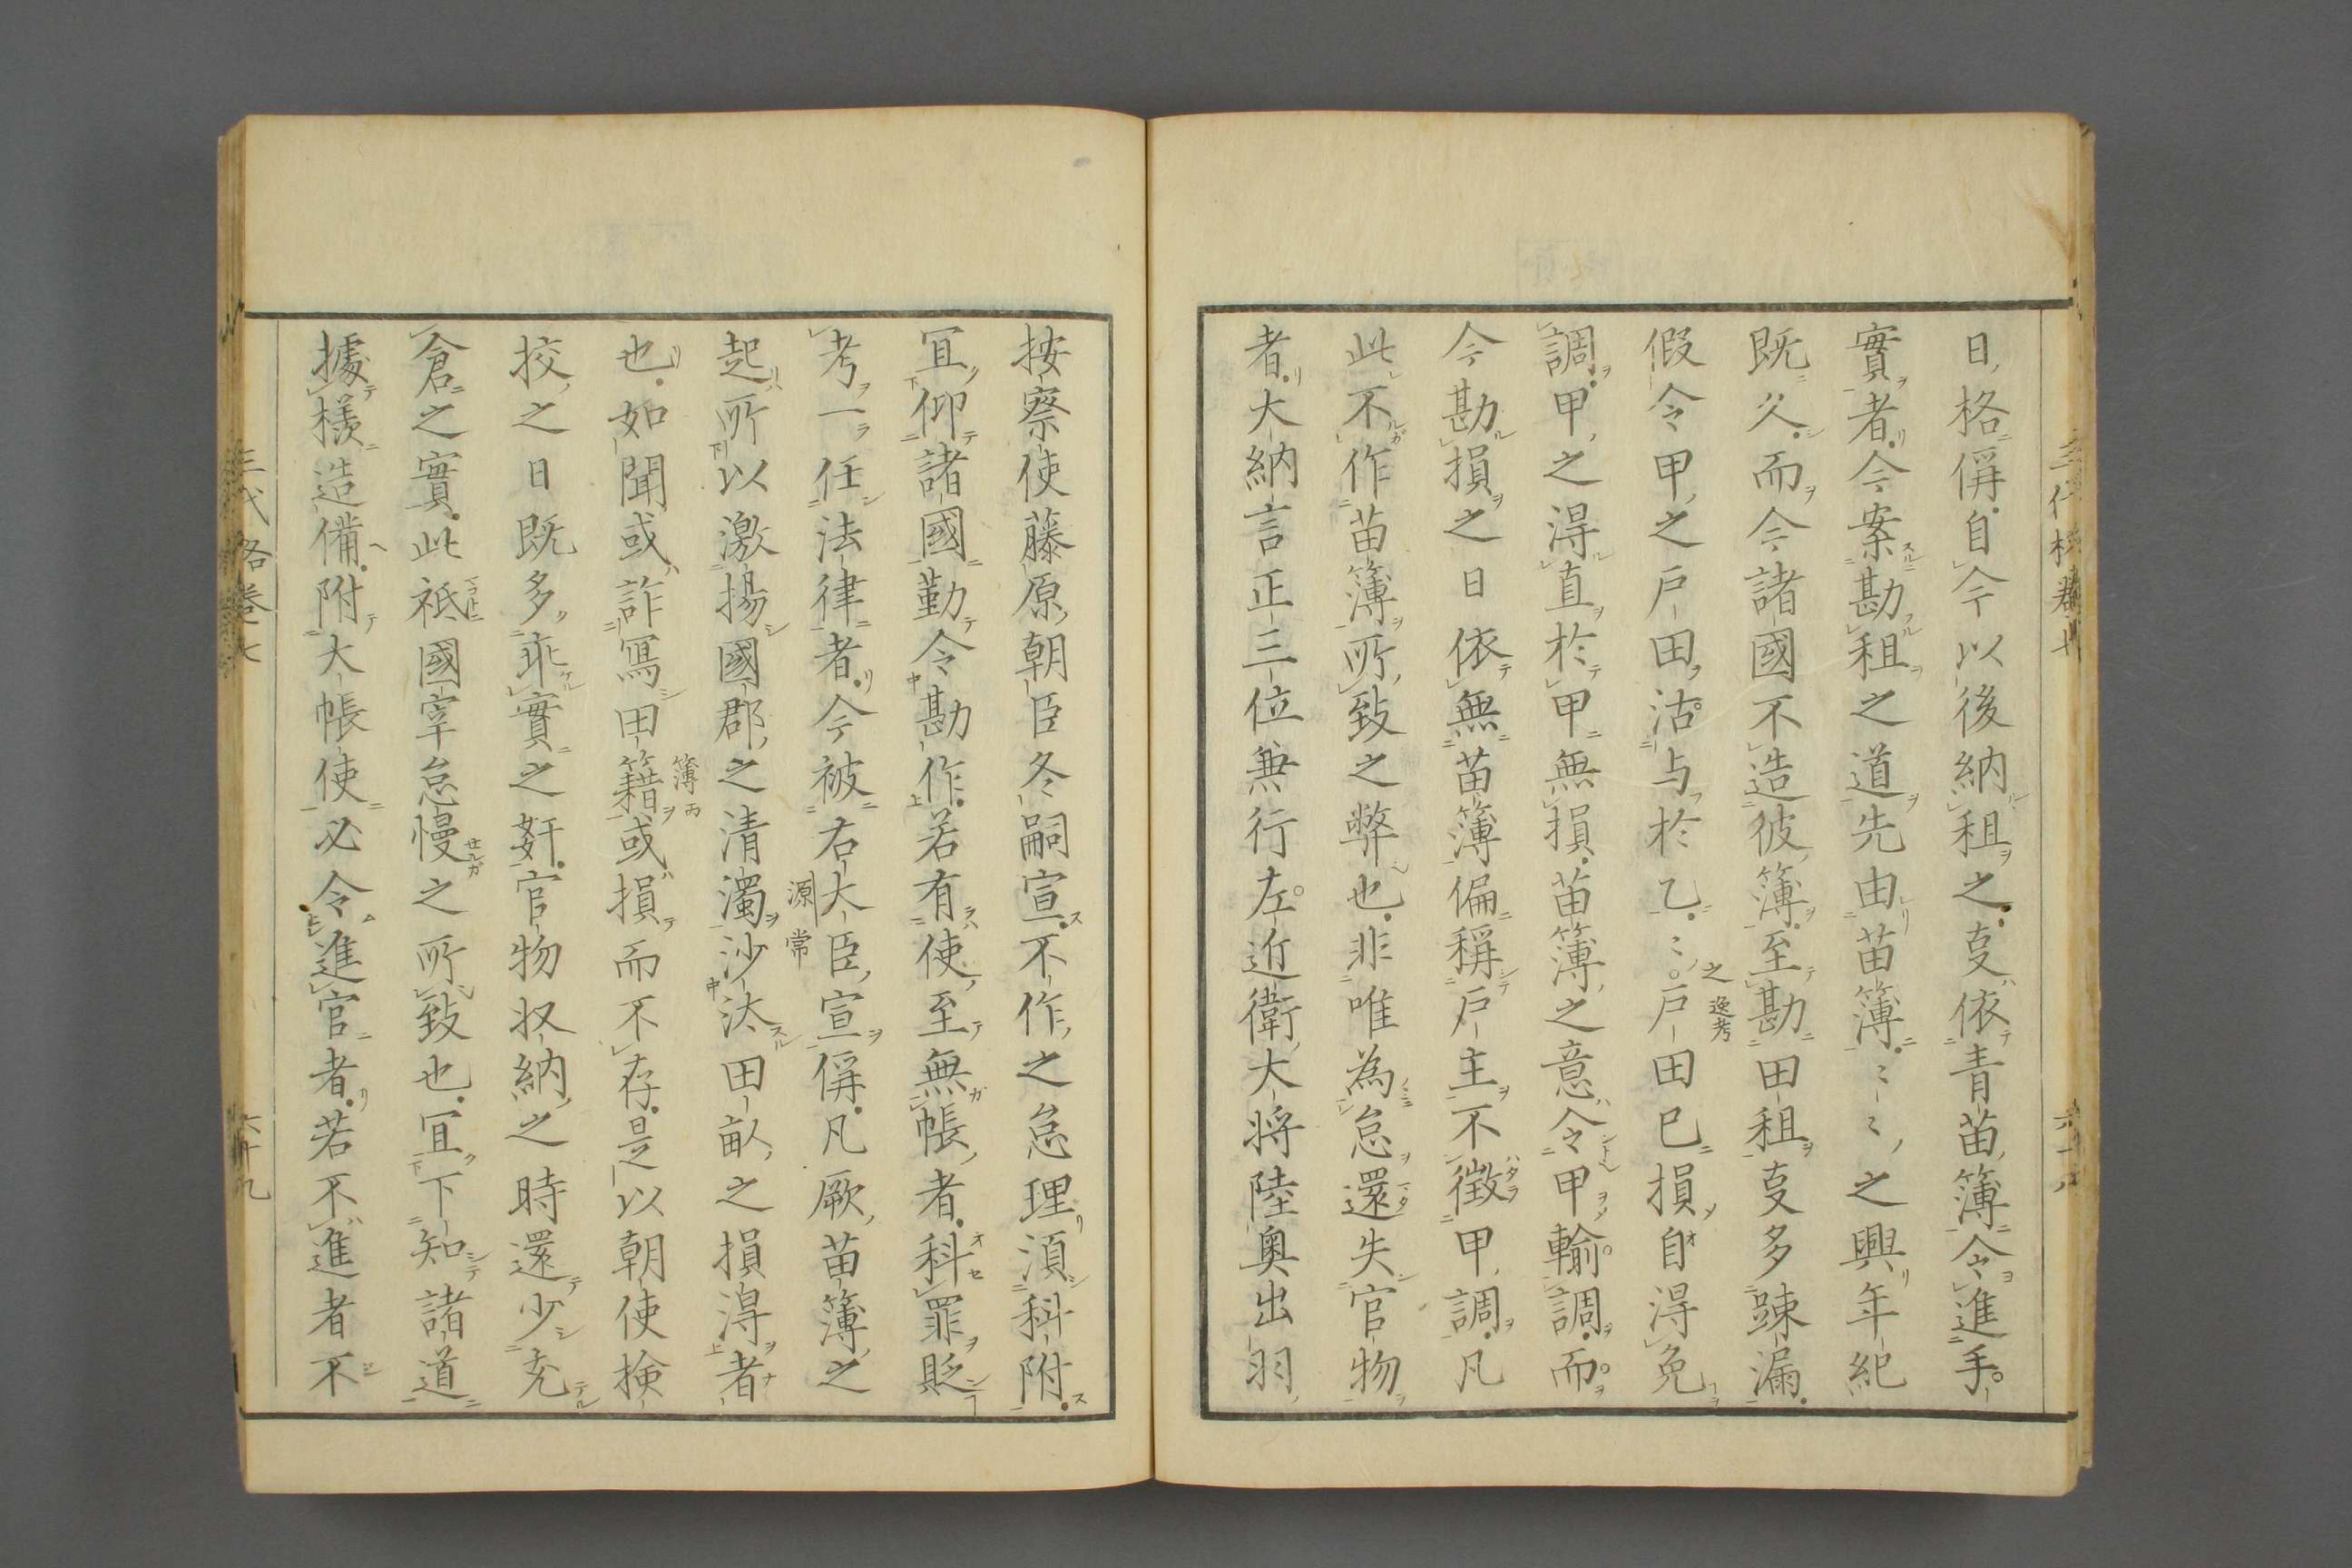 日格偁自今以後納租之㕝依青苗簿令進手
實者今案勘租之道先由苗簿〻〻之興年紀
既久而今諸國不造彼簿至勘田租㕝多踈漏
假令甲之戸田沽与於乙〻之戸田巳損自得免
逸考
調甲之得直於甲無損苗簿之意令甲輸調而
今勘損之日依無苗簿偏稱戸主不徴甲調凡
此不作苗簿所致之弊也非唯為怠還失官物
者大納言正三位兼行左近衛大将陸奥出羽
按察使藤原朝臣冬嗣宣不作之怠理湏科附
冝仰諸國勤令勘作若有使至無帳者科罪貶
考一任法律者今被右大臣宣偁凡厥苗簿之
源常
起所以激揚國郡之清濁沙汰田畒之損得者
也如聞或詐冩田籍或損而不存是以朝使検
簿
挍之日既多乖實之姧官物収納之時還少充
倉之實此祗國宰怠慢之所致也冝下知諸道
據様造備附大帳使必令進官者若不進者不
三代格巻七
六十九